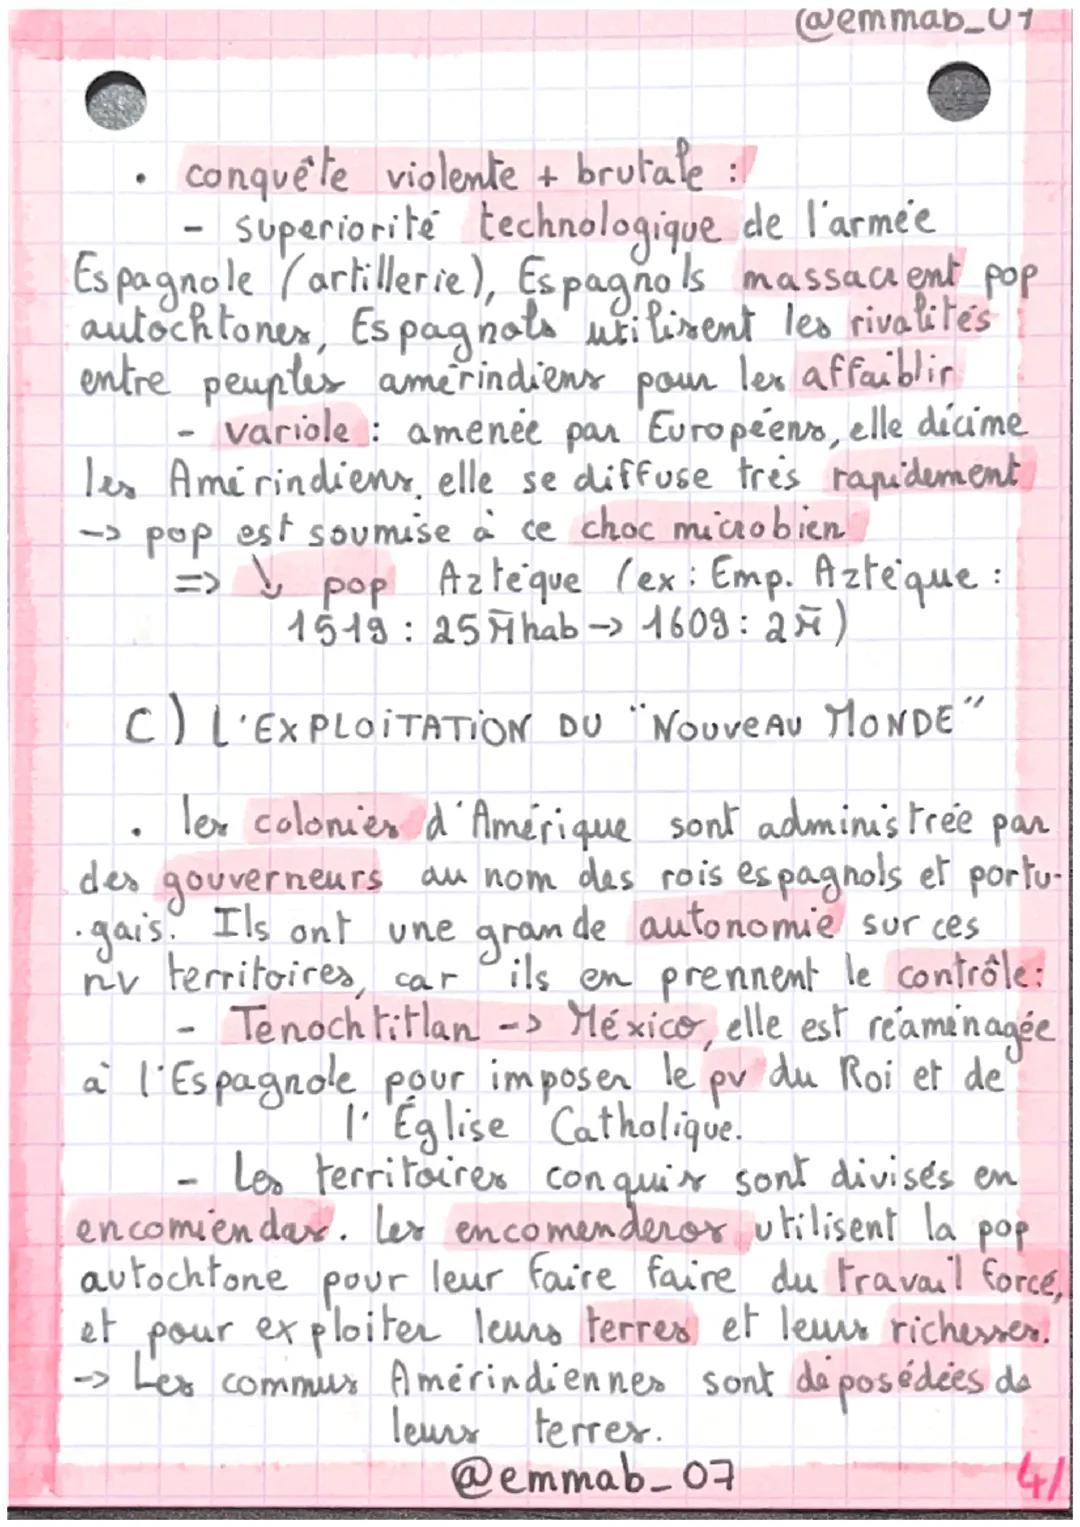 @emmab_07
• conquête violente + brutale :
- superiorité technologique de l'armée
Espagnole (artillerie), Espagnols massacrent pop
autochtones, Espagnols utilisent les rivalités
entre peuples amérindiens pour les affaiblir
- variole : amenée par Européens, elle décime
les Amérindiens, elle se diffuse très rapidement
-> pop est soumise à ce choc microbien
=> ↓ pop Aztèque (ex : Emp. Aztèque :
1519 : 25 M hab -> 1609 : 2 M)
C) L'EXPLOITATION DU "NOUVEAU MONDE"
• les colonies d'Amérique sont administrée par
des gouverneurs au nom des rois espagnols et portu-
-gais. Ils ont une grande autonomie sur ces
nv territoires, car ils en prennent le contrôle :
- Tenochtitlan -> México, elle est réaménagée
à l'Espagnole pour imposer le pv du Roi et de
l'Église Catholique.
- Les territoires conquis sont divisés en
encomiendas. Les encomenderos utilisent la pop
autochtone pour leur faire faire du travail forcé,
et pour exploiter leurs terres et leurs richesses.
-> Les commus Amérindiennes sont déposédées de
leurs terres.
@emmab_07
4/